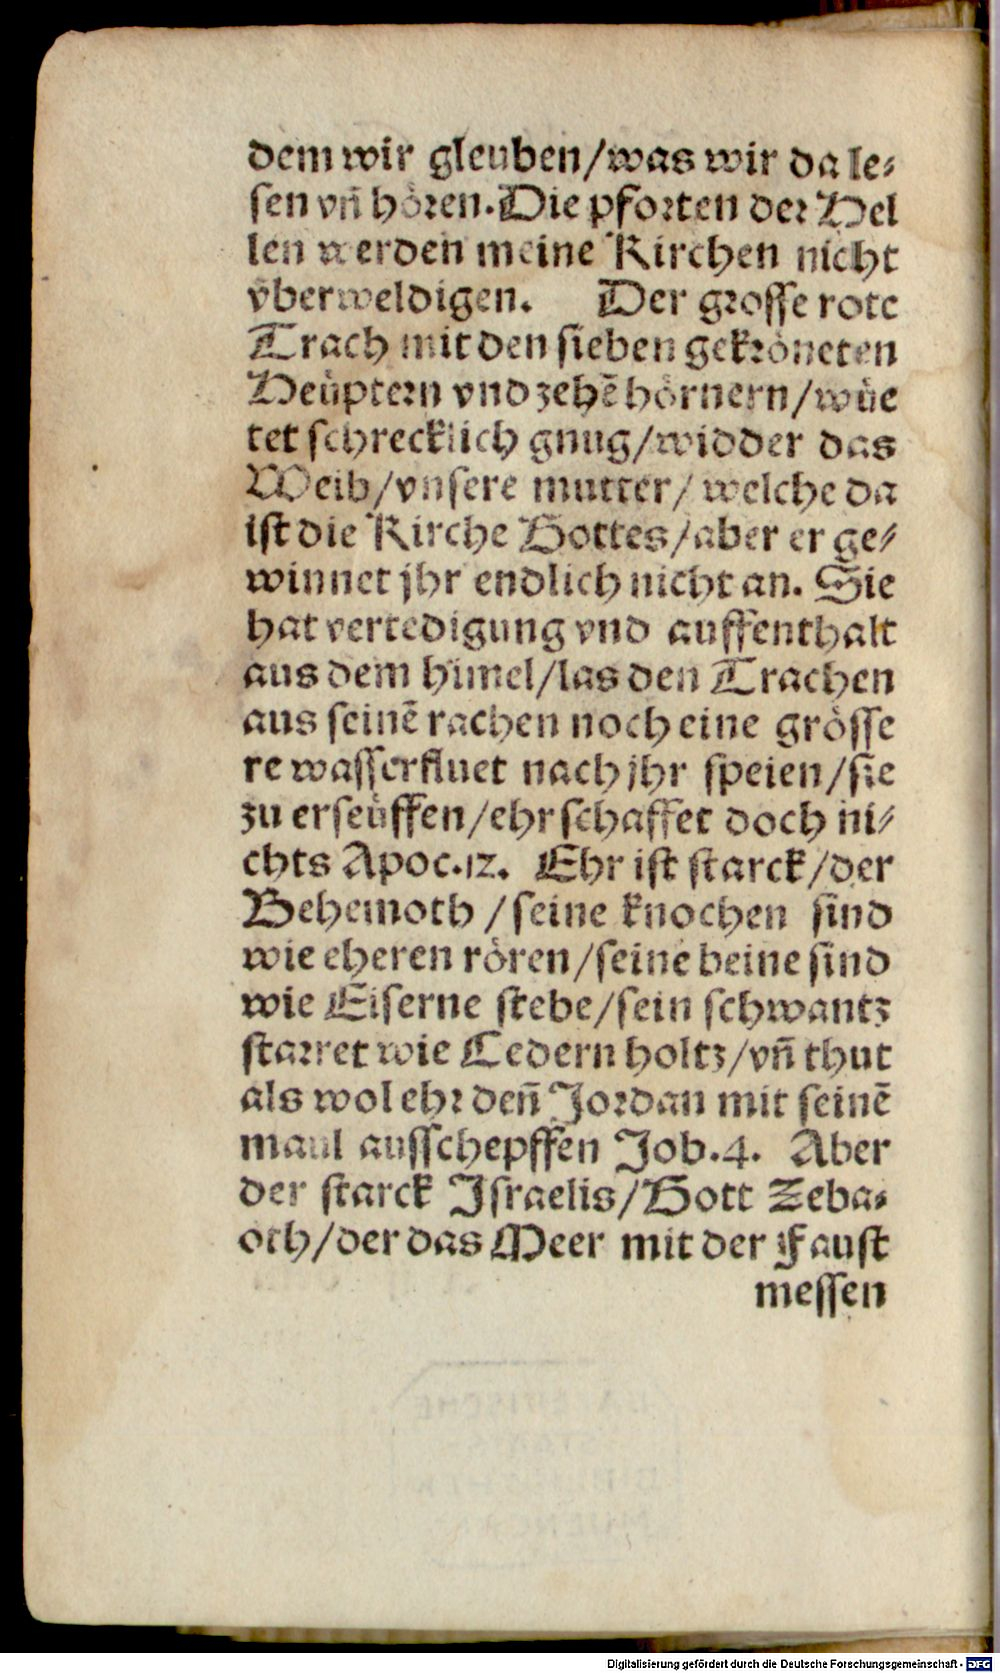 dem wir gleuben/was wir da le⸗
sen vñ hören. Die pforten der Hel
len werden meine Kirchen nicht
vberweldigen. Der grosse rote
Trach mit den sieben gekröneten
Heüptern vnd zehē hörnern/wüe
tet schrecklich gnug/widder das
Weib/vnsere mutter/ welche da
ist die Kirche Gottes/aber er ge⸗
winnet jhr endlich nicht an. Sie
hat vertedigung vnd auffenthalt
aus dem himel/las den Trachen
aus seinē rachen noch eine grösse
re wasserfluet nach jhr speien/sie
zu erseüffen/ehr schaffet doch ni⸗
chts Apoc.12. Ehr ist starck/der
Behemoth /seine knochen sind
wie eheren rören/seine beine sind
wie Eiserne stebe/sein schwantz
starret wie Cedern holtz/vñ thut
als wol ehr deñ Jordan mit seinē
maul ausschepffen Job.4. Aber
der starck Israelis/Gott Zeba⸗
oth/der das Meer mit der Faust
messen
Digitalisierung gefördert durch die Deutsche Forschungsgemeinschaft - DFG